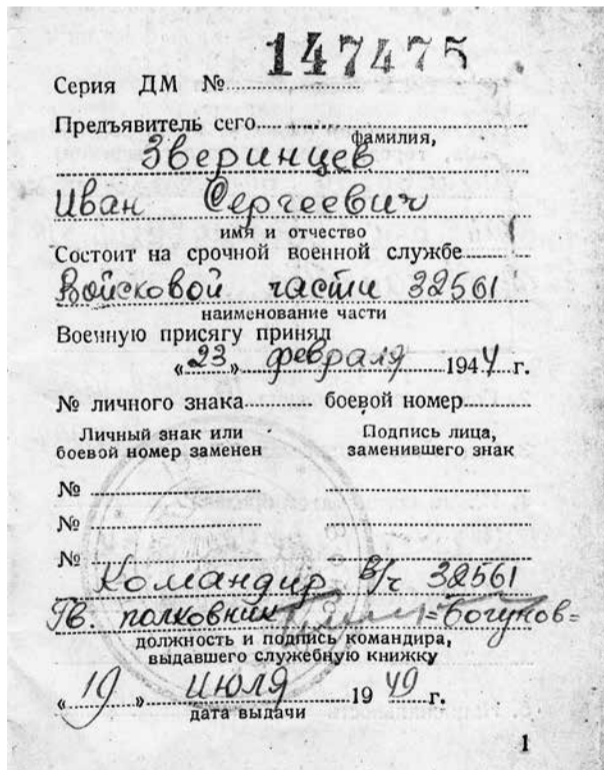 147475
Серия ДМ №
Предъявитель сего
фамилия,
Зверинцев
Иван Сергеевич
имя и отчество
Состоит на срочной военной службе
Войсковой части 32561
наименование части
Военную присягу принял
«23» февраля 1944 г.
№ личного знака боевой номер
Личный знак или Подпись лица,
боевой номер заменен заменившего знак
№
№
№
Командир в/ч 32561
Гв. полковник =Богунов=
должность и подпись командира,
выдавшего служебную книжку
«19» июля 1949 г.
дата выдачи
1